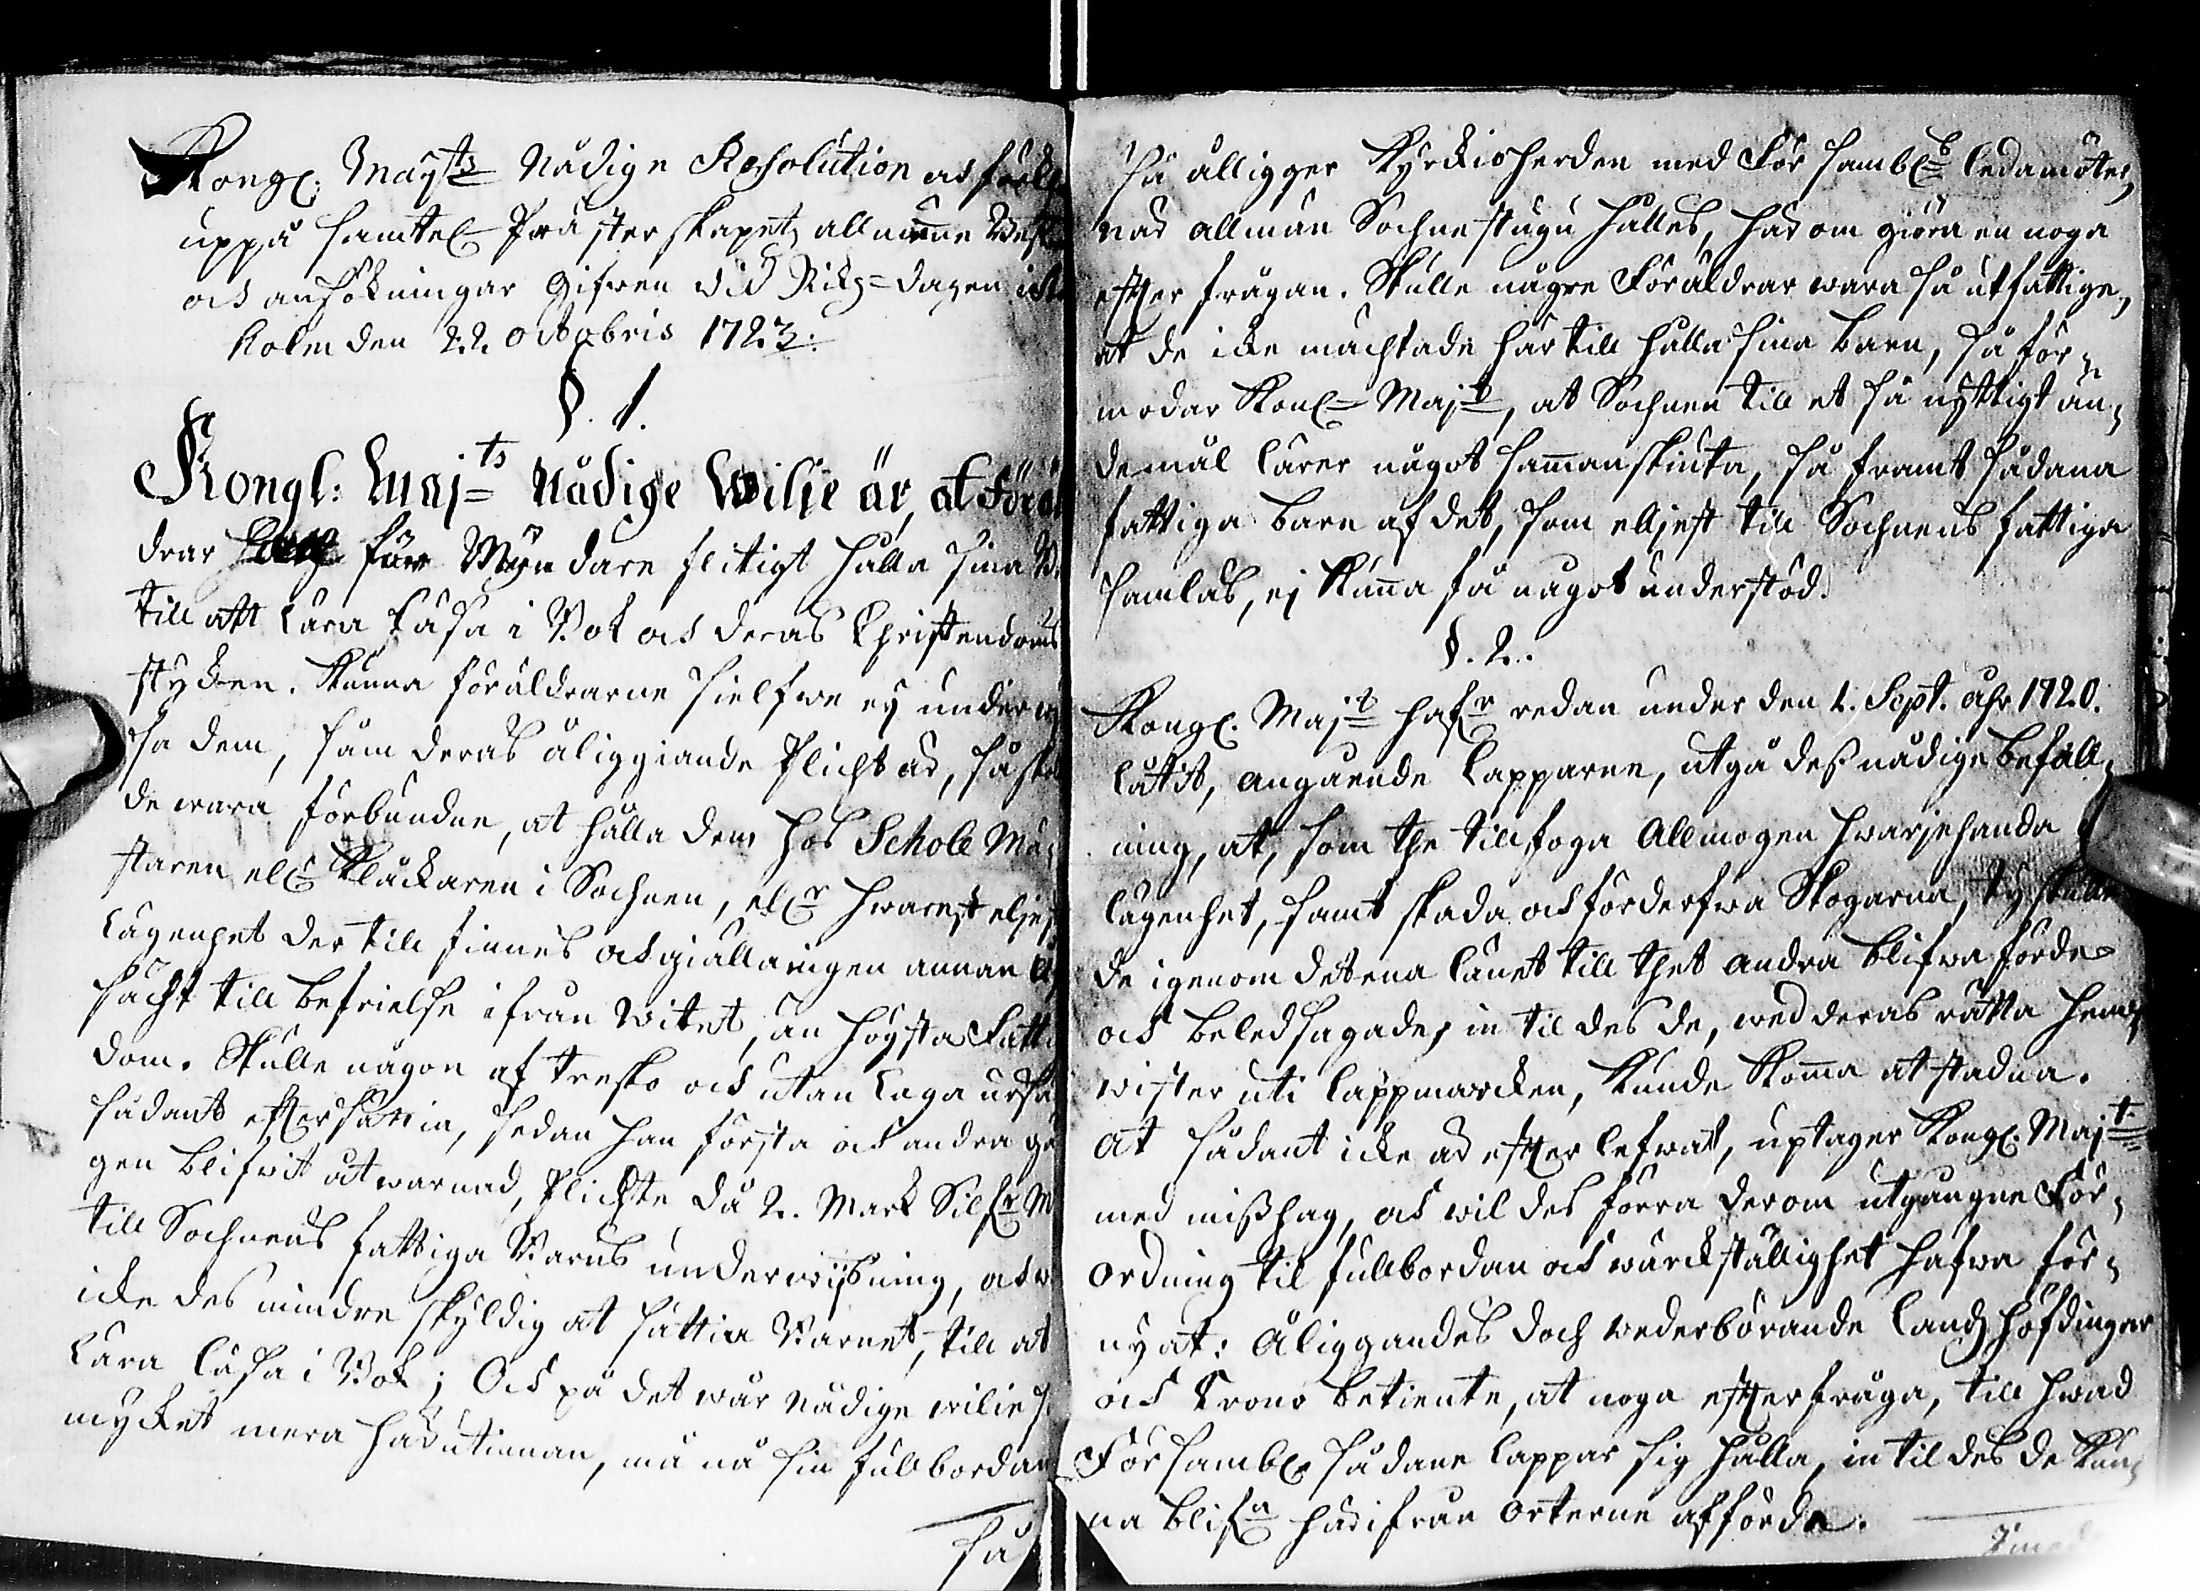 Kongl: Mayts Nådige Resolution och
uppå samtel. Prästerskapets allmänne
och ansökningar gifwen vid Rikz=dagen i
holm den 22 Octobris 1723.
§. 1.
Kongl: Maj:ts Nådige Wilje är, at Föräl
drar för Myndare flitigt hålla sina
till att lära läsa i Bok och deras Christendoms
stycken. Kunna föräldrarne sielfwe ey underwij
sa dem, som deras åliggiande Plicht är, så skola
de wara förbundne, at hålla dem hos Schole Mä
staren elr Klåckaren i Sochnen, elr hwarest eljest
lägenhet der till finnes och giälla ingen annan
sächt till befrielse ifrån Witet, än högsta Fattig
dom. Skulle någon af tresko och utan Laga ursä
sådant efftersättia, sedan han första och andra gå
gen blifwit åtwarnad, plichte då 2. Mark Silfr M
till Sochnens fattiga Barns underwijsning, och
icke des mindre skyldig at sättia Barnet, till at
lära läsa i Bok; Och på det wår nådige wilie så
mycket mera härutinnan, må nå sin fullbordan
så
så ålligger Kyrkioherden med Församblr Ledamöter,
när allmän Sochnestugu hålles, här om giöra en noga
effter frågan. Skulle någre Föräldrar wara så utfattige,
at de icke mächtade här till hålla sina barn, så för=
modar Konl Majt, at Sochnen till et så nyttigt än=
demål lärer något sammanskiuta, så framt sådana
fattiga barn af det, som elljest till Sochnens fattiga
samlas, ej kunna få något understöd.
§. 2.
Kongl. Majt hafr redan under den 1. Sept. åhr 1720.
låtit, angående Lapparne, utgå dess nådige befall=
ning, at, som the tillfoga Allmogen hwarjehanda
lägenhet, samt skada och förderfwa Skogarna, ty skulle
de igenom det ena länet till thet andra blifwa förde
och beledsagade, in til des de, wed deras rätta hem=
wister uti Lappmarcken, kunde komma at stadna.
At sådant icke är effter lefwat, uptager Kongl. Majt
med misshag, och wil des förra derom utgångne För=
ordning til fullbordan och wärckställighet hafwa för=
nyat: Åliggandes doch wederbörande Landzhöfdingar
och Krono betiente, at noga effterfråga, till hwad
Försambl. sådane Lappar sig hålla, in til des de kun=
na blifa härifrån Orterne afförde.